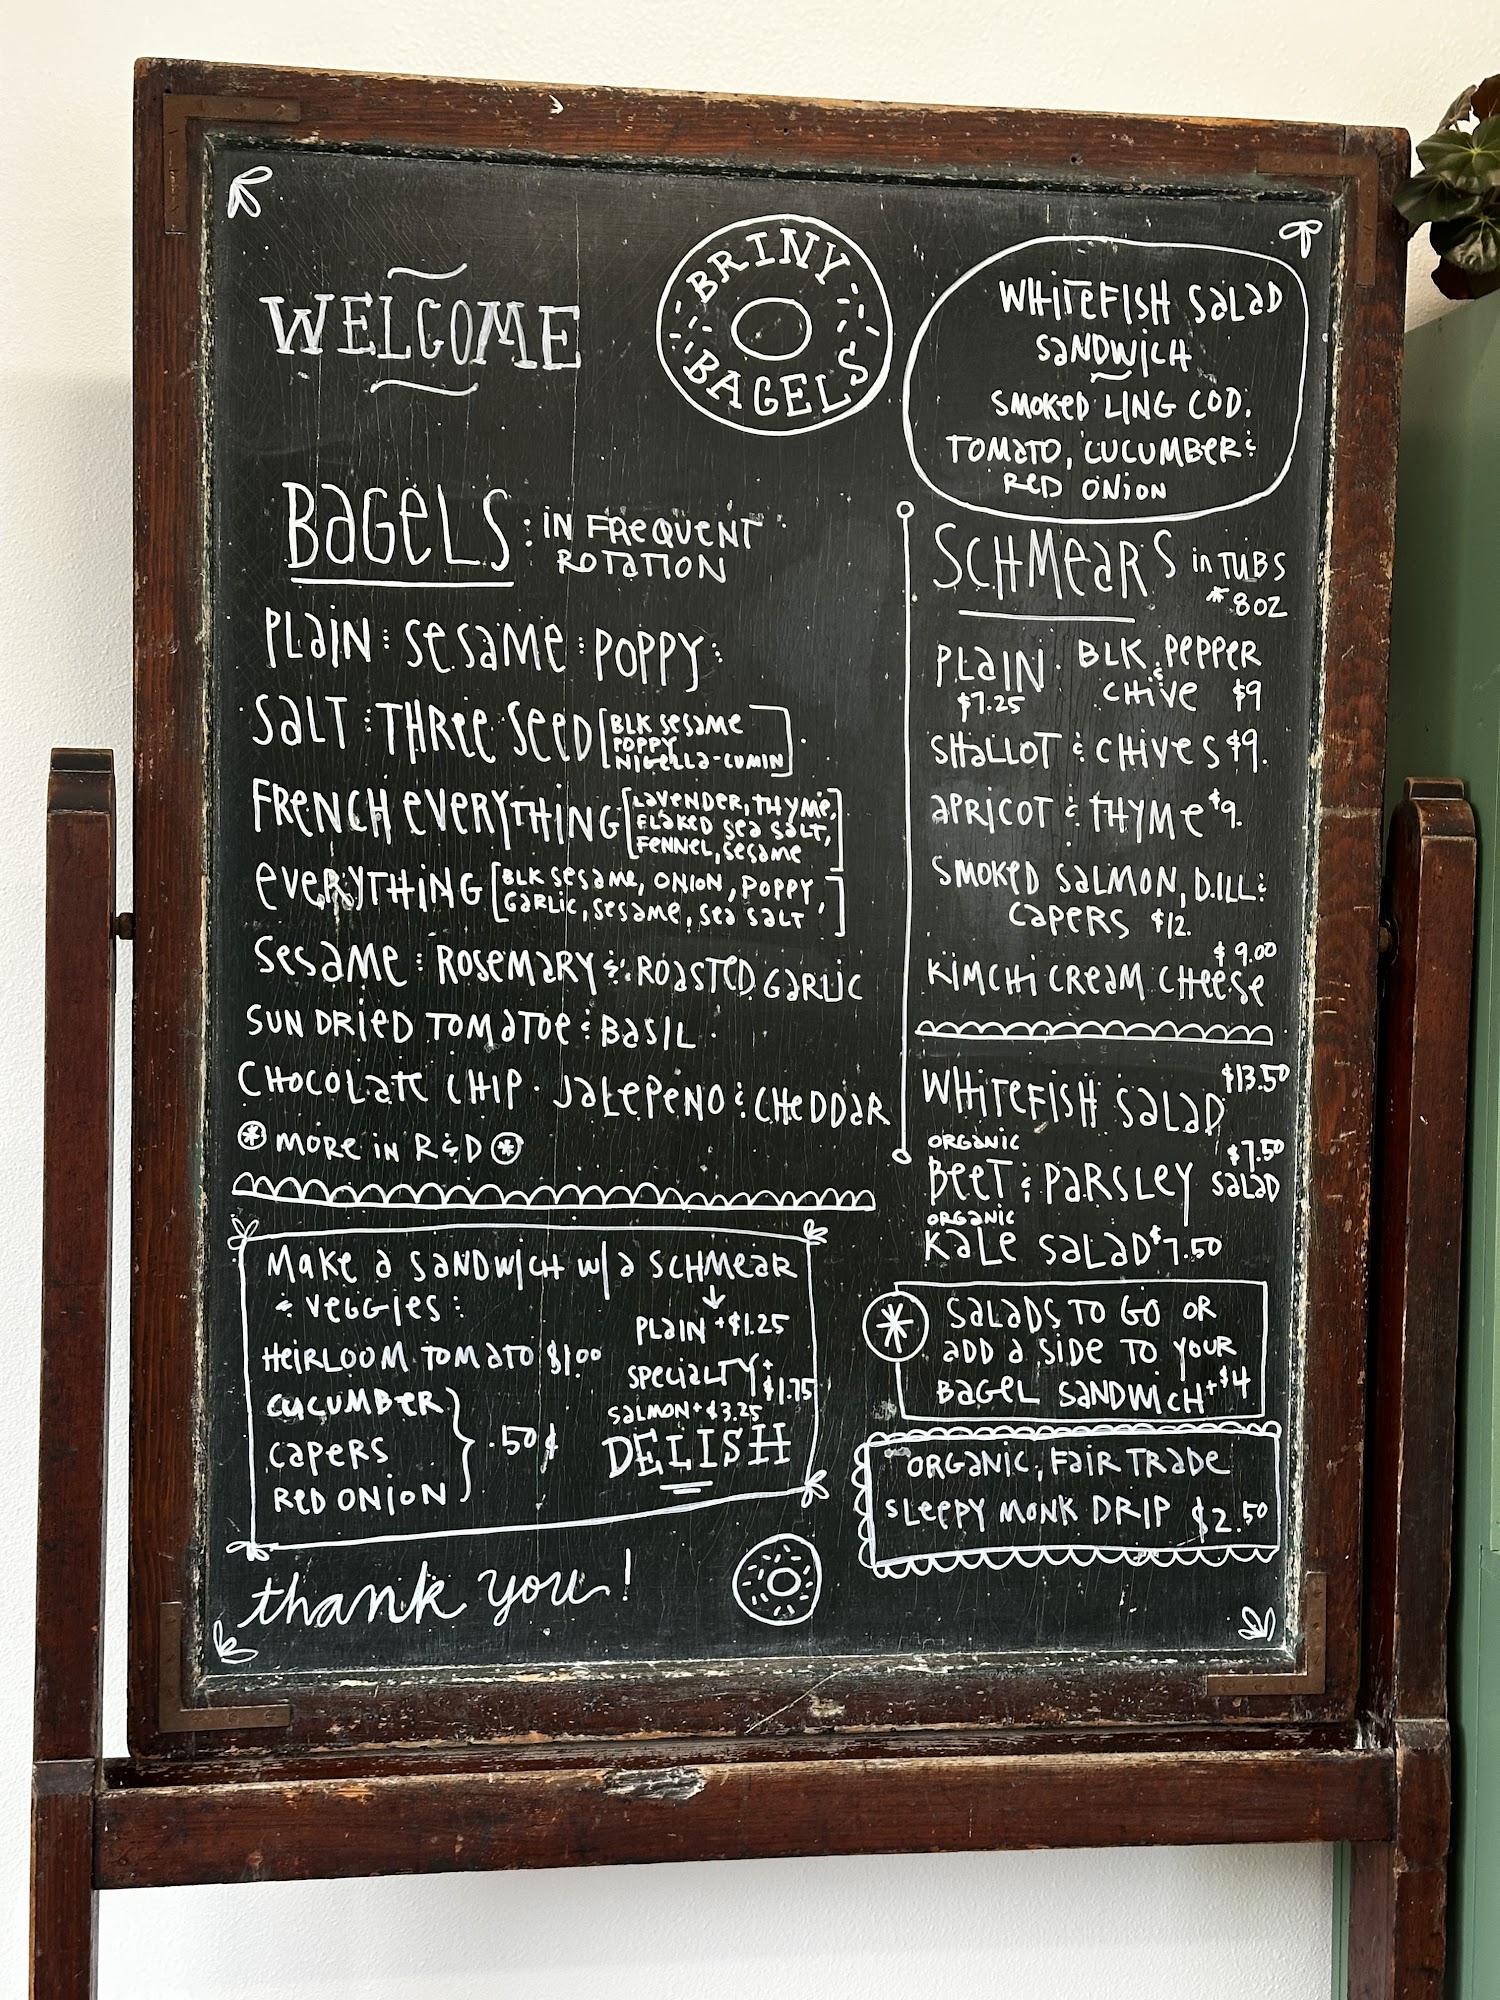 WELCOME
BRINY
BAGELS
WHITEFISH SALAD
SANDWICH
SMOKED LING COD.
TOMATO, CUCUMBER &
RED ONION
BAGELS : IN FREQUENT
ROTATION
PLAIN : SESAME : POPPY :
SALT : THREE SEED [BLK SESAME
POPPY
NIGELLA-CUMIN]
FRENCH EVERYTHING [LAVENDER, THYME,
FLAKED SEA SALT,
FENNEL, SESAME]
EVERYTHING [BLK SESAME, ONION, POPPY,
GARLIC, SESAME, SEA SALT]
SESAME : ROSEMARY & ROASTED GARLIC
SUN DRIED TOMATOE & BASIL
CHOCOLATE CHIP · JALEPENO & CHEDDAR
* MORE IN R&D *
SCHMEARS IN TUBS
* 8OZ
PLAIN · BLK PEPPER
$7.25 & CHIVE $9
SHALLOT & CHIVES $9.
APRICOT & THYME $9.
SMOKED SALMON, DILL &
CAPERS $12.
$9.00
KIMCHI CREAM CHEESE
WHITEFISH SALAD $13.50
ORGANIC
BEET & PARSLEY SALAD $7.50
ORGANIC
KALE SALAD $7.50
* SALADS TO GO OR
ADD A SIDE TO YOUR
BAGEL SANDWICH +$4
ORGANIC, FAIR TRADE
SLEEPY MONK DRIP $2.50
MAKE A SANDWICH W/ A SCHMEAR
& VEGGIES :
HEIRLOOM TOMATO $1.00
CUCUMBER
CAPERS } .50¢
RED ONION
PLAIN +$1.25
SPECIALTY +$1.75
SALMON +$3.25
DELISH
thank you!